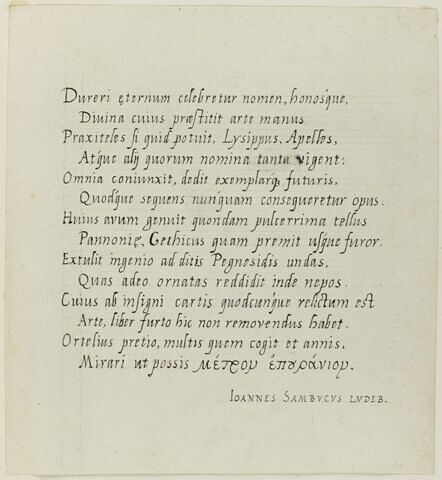 Dureri ęternum celebretur nomen, honosq́ue,
Diuina cuius præstitit arte manus
Praxiteles si quid potuit, Lysippus, Apelles,
Atq́ue alij quorum nomina tanta vigent:
Omnia coniunxit, dedit exemplarq́ꝫ futuris,
Quodq́ue sequens nunquam consequeretur opus.
Huius auum genuit quondam pulcerrima tellus
Pannonię, Gethicus quam premit usq́ue furor.
Extulit ingenio ad ditis Pegnesidis undas,
Quas adeo ornatas reddidit inde nepos.
Cuius ab insigni cartis quodcunque relictum est
Arte, liber furto hic non remouendus habet.
Ortelius pretio, multis quem cogit et annis,
Mirari ut possis μέτρον ἐπουράνιον.
IOANNES SAMBVCVS LVDEB.